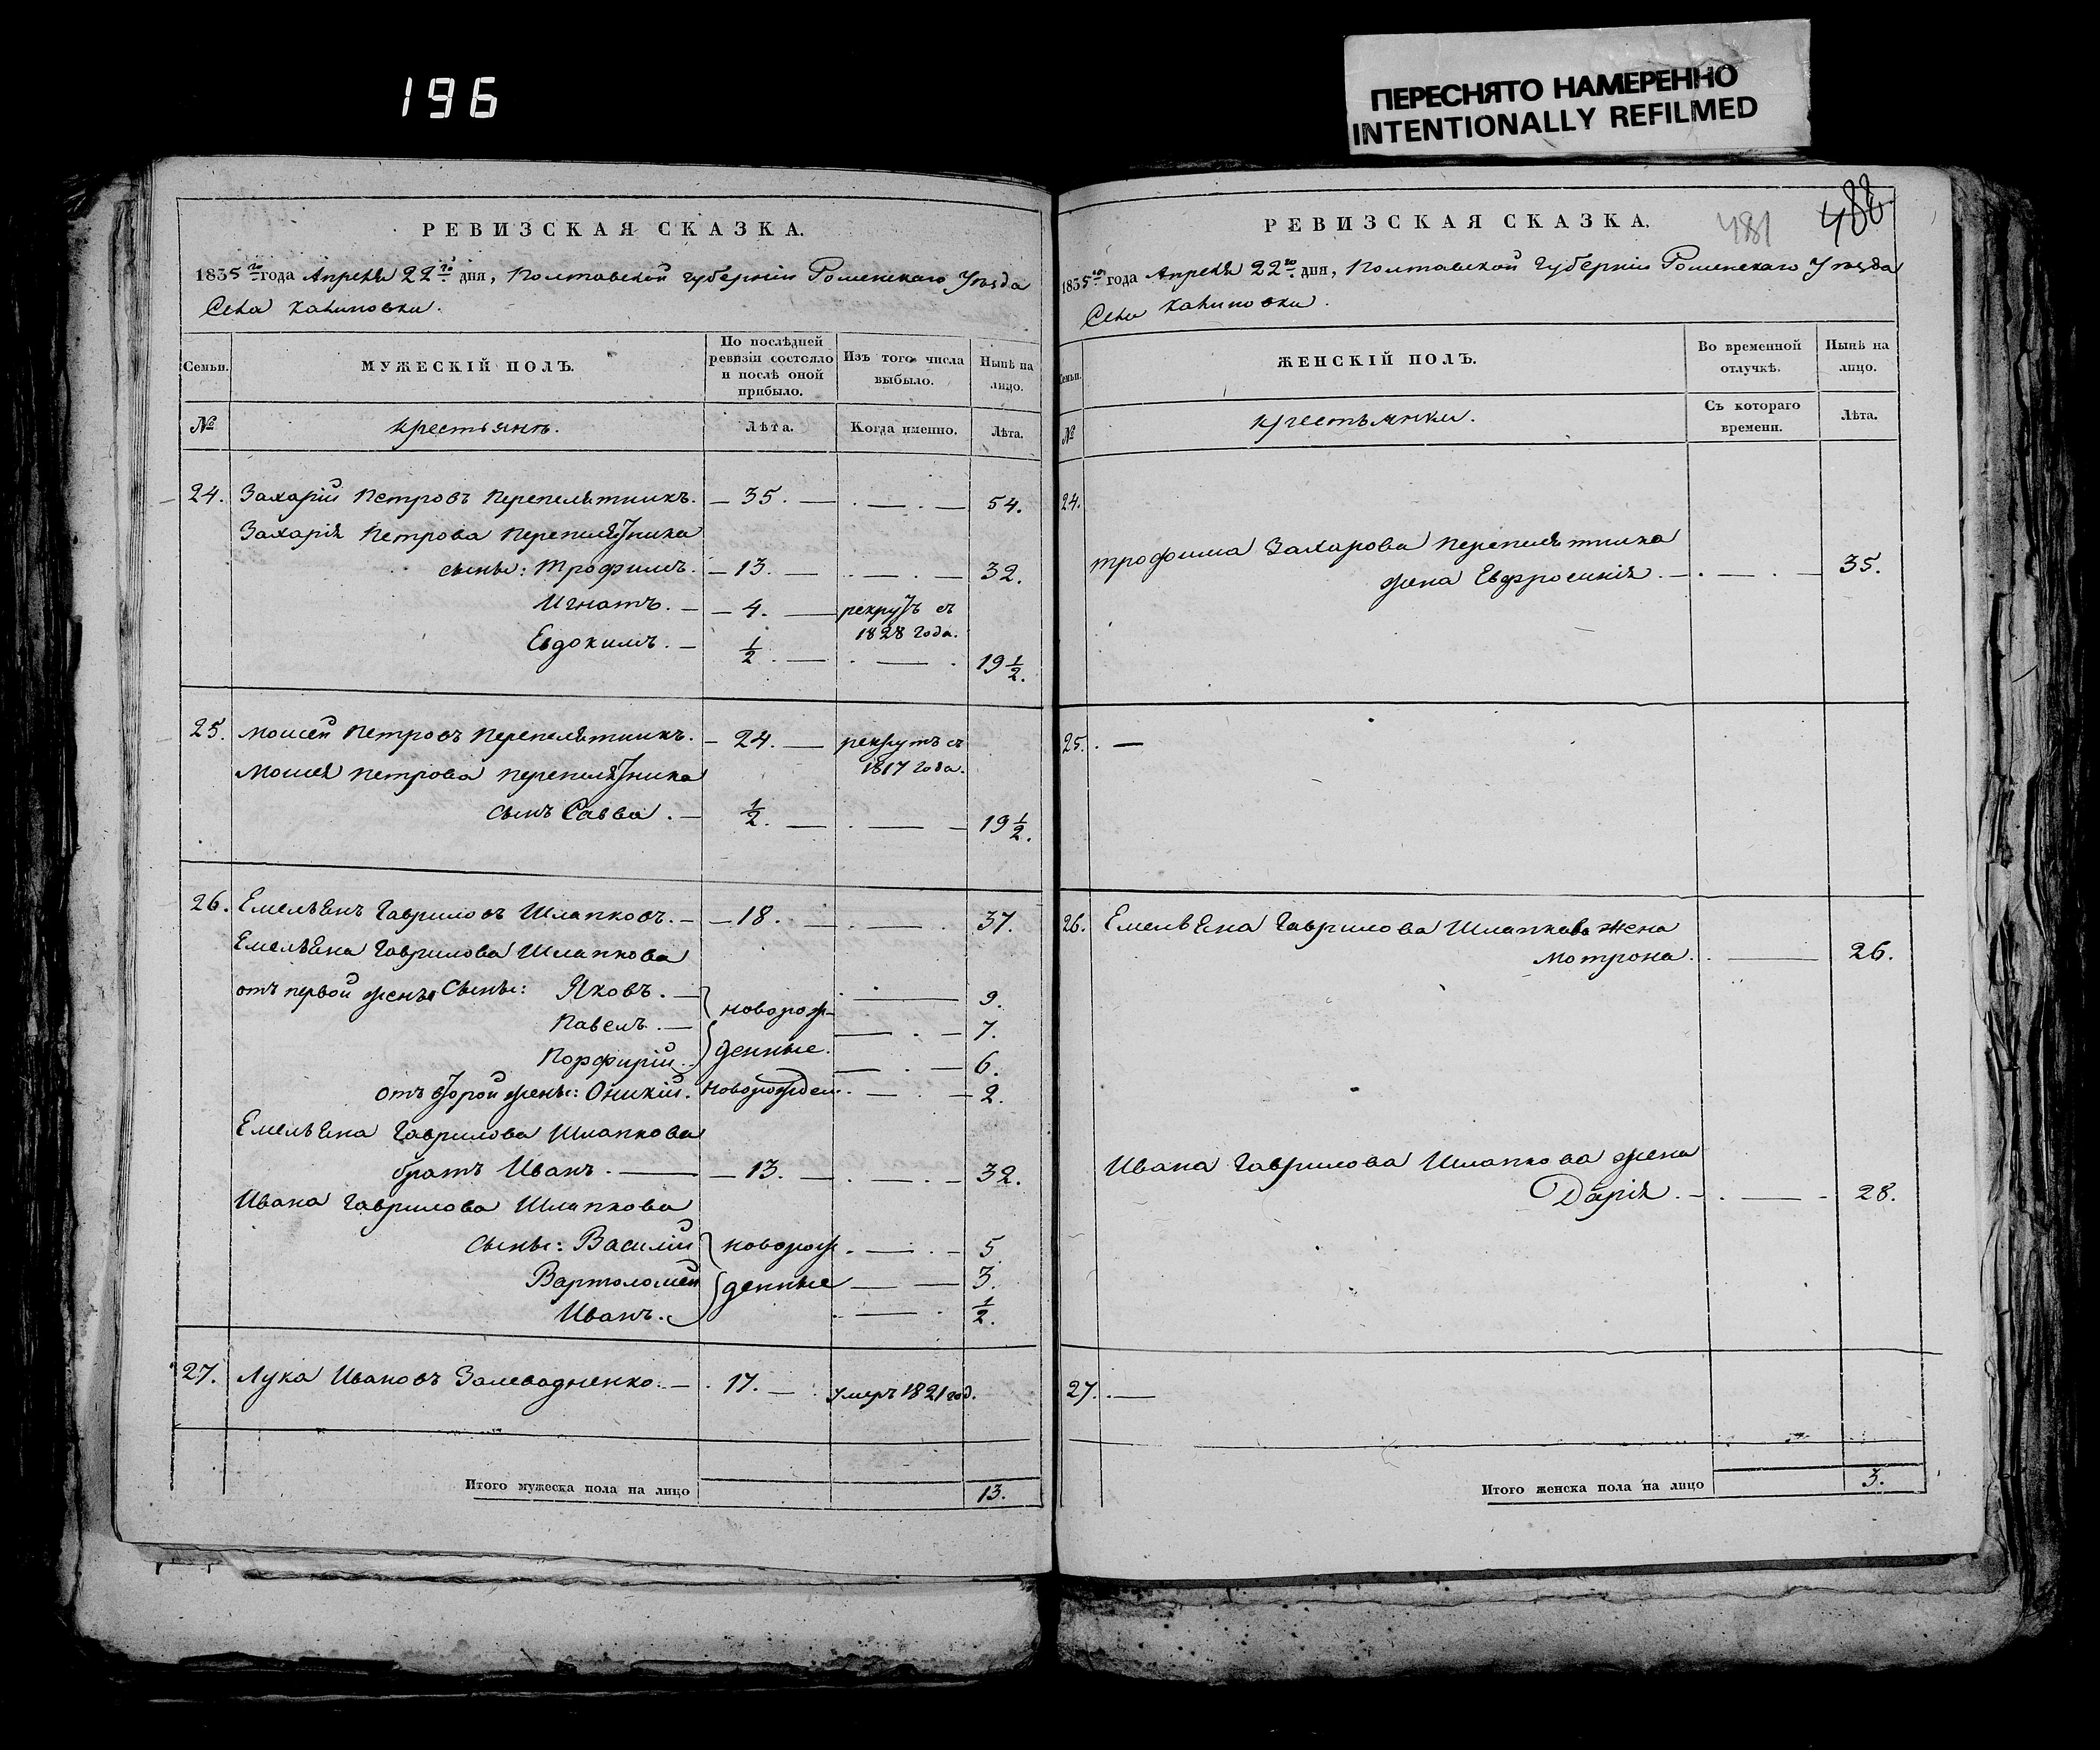 196
ПЕРЕСНЯТО НАМЕРЕННО
INTENTIONALLY REFILMED
РЕВИЗСКАЯ СКАЗКА.
1835 го года Апреля 22 го дня, Полтавской Губернии Роменскаго Уезда
Села Калиновки.
Семьи. МУЖЕСКІЙ ПОЛЪ. По послѣдней ревизіи состояло и послѣ оной прибыло. Изъ того числа выбыло. Нынѣ на лицо.
№ Крестьянъ. Лѣта. Когда именно. Лѣта.
24. Захарій Петровъ Перепелятникъ. — 35. — . — . — 54.
Захарія Петрова Перепелятника
сыны: Трофимъ. — 13. — . — . — 32.
Игнатъ. — — 4. — рекрутъ съ
1828 года.
Евдокимъ. — 1/2 . — . — . 19 1/2.
25. Моисей Петровъ Перепелятникъ. — 24. — рекрутъ съ
1817 года.
Моисея Петрова Перепелятника
сынъ Савва. — 1/2. — . — — 19 1/2.
26. Емельянъ Гавриловъ Шлапковъ. — — 18. — . — . 37.
Емельяна Гаврилова Шлапкова
отъ первой жены Сыны: Яковъ. — новорож- . — 9.
Павелъ. — — . — 7.
Порфирій. денные. — . — 6.
отъ второй жены: Оникій. новорожден. . — . — 2.
Емельяна Гаврилова Шлапкова
братъ Иванъ. — — 13. — . — . — 32.
Ивана Гаврилова Шлапкова
сыны: Василій новорож . — . — 5
Вартоломей денные — — 3.
Иванъ. . — . 1/2.
27. Лука Ивановъ Залевадненко. — . 17. — . умеръ 1821 год.
Итого мужеска пола на лицо 13.
481 488
РЕВИЗСКАЯ СКАЗКА.
1835 го года Апреля 22 го дня, Полтавской Губерніи Роменскаго Уезда
Села Калиновки.
Семьи. ЖЕНСКІЙ ПОЛЪ. Во временной отлучкѣ. Нынѣ на лицо.
№ Крестьянки. Съ котораго времени. Лѣта.
24.
Трофима Захарова Перепелятника
жена Евфросинія. — . — . — 35.
25. . —
26. Емельяна Гаврилова Шлапкова жена
Мотрона. . — 26.
Ивана Гаврилова Шлапкова жена
Дарія. — . — - 28.
27. . —
Итого женска пола на лицо 3.